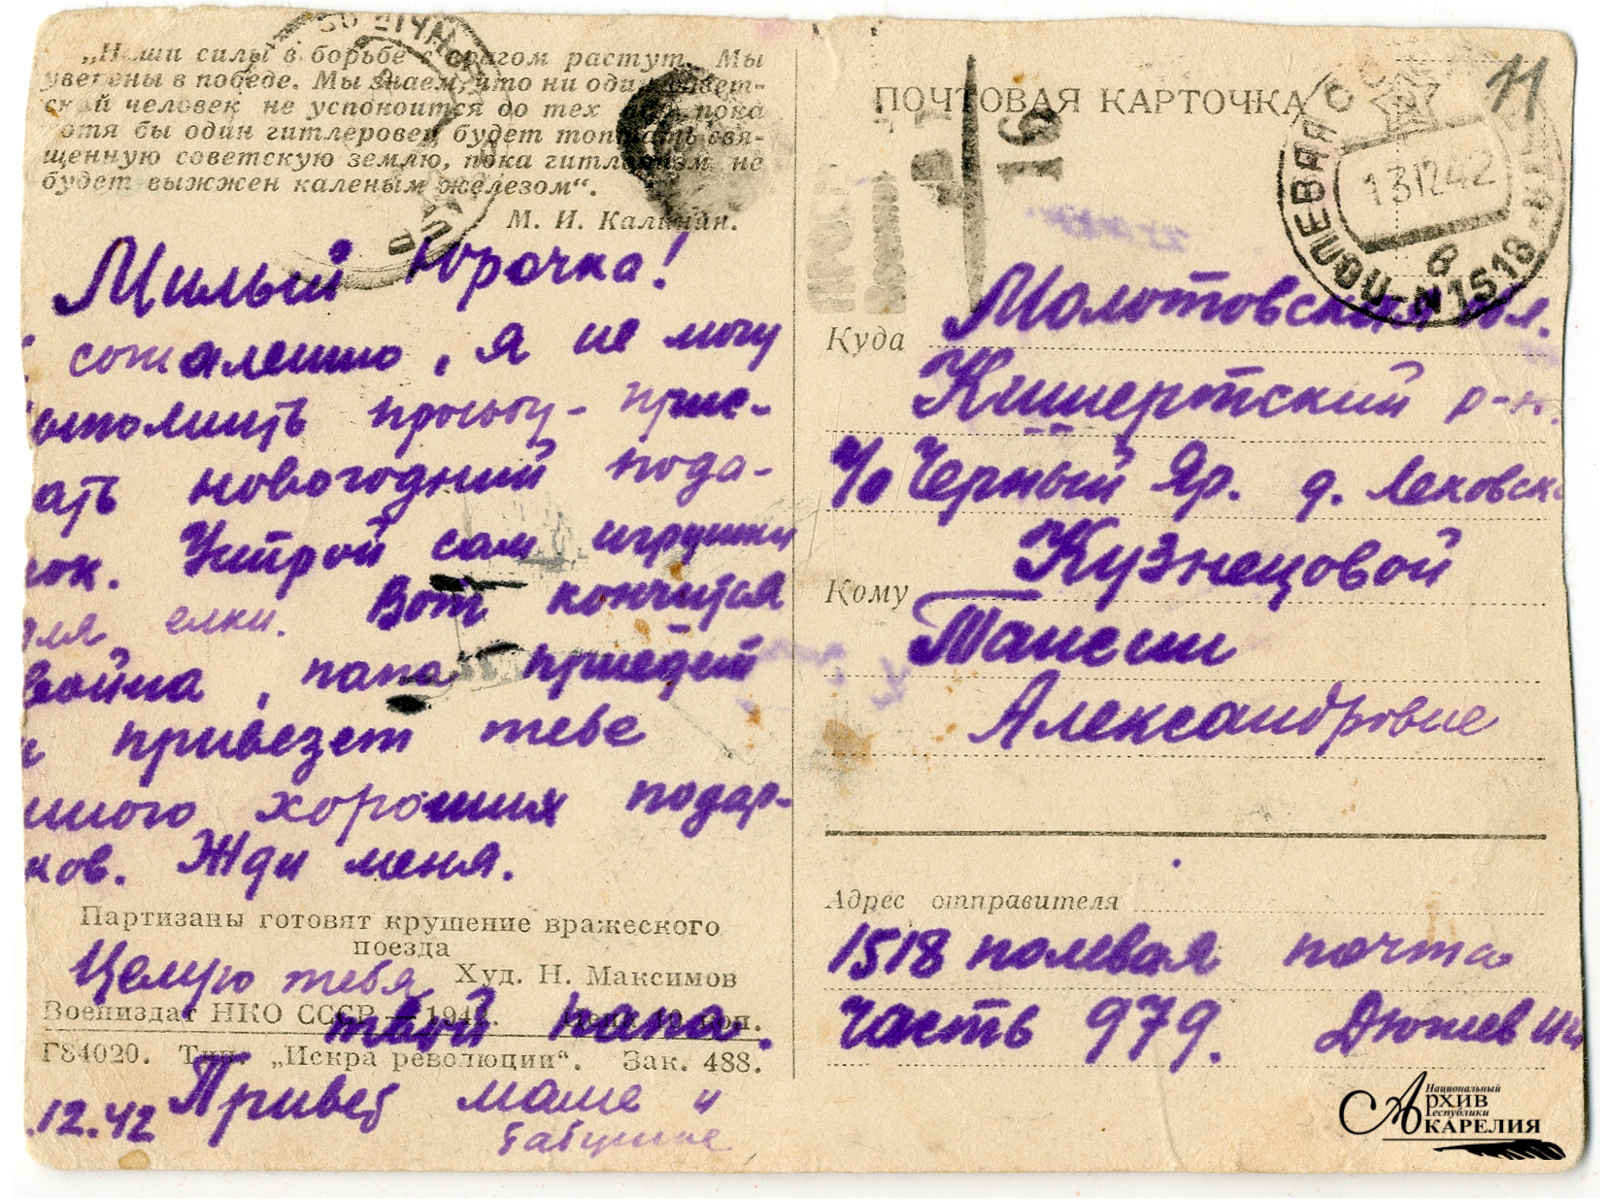 „Наши силы в борьбе с врагом растут. Мы
уверены в победе. Мы знаем, что ни один совет-
ский человек не успокоится до тех пор, пока
хотя бы один гитлеровец будет топтать свя-
щенную советскую землю, пока гитлеризм не
будет выжжен каленым железом“.
М. И. Калинин.
Милый Юрочка!
сожалению, я не могу
просьбу - прис-
ать новогодний пода-
рок. Устрой сам игрушки
для елки. Вот кончится
война, папа приедет
и привезет тебе
много хороших подар-
ков. Жди меня.
Партизаны готовят крушение вражеского
поезда
Худ. Н. Максимов
Целую тебя
твой папа.
Воениздат НКО СССР — 194
Г84020. Тип. „Искра революции“. Зак. 488.
.12.42 Привет маме и
бабушке
ПОЧТОВАЯ КАРТОЧКА
11
16
ПОЛЕВАЯ
13 12 42
N 1518
Куда Молотовская обл.
Кишертский р-н.
п/о Черный Яр. д. Лековск
Кому Кузнецовой
Таисии
Александровне
Адрес отправителя
1518 полевая почта
часть 979. Дюжев
Национальный
Архив
Республики
Карелия